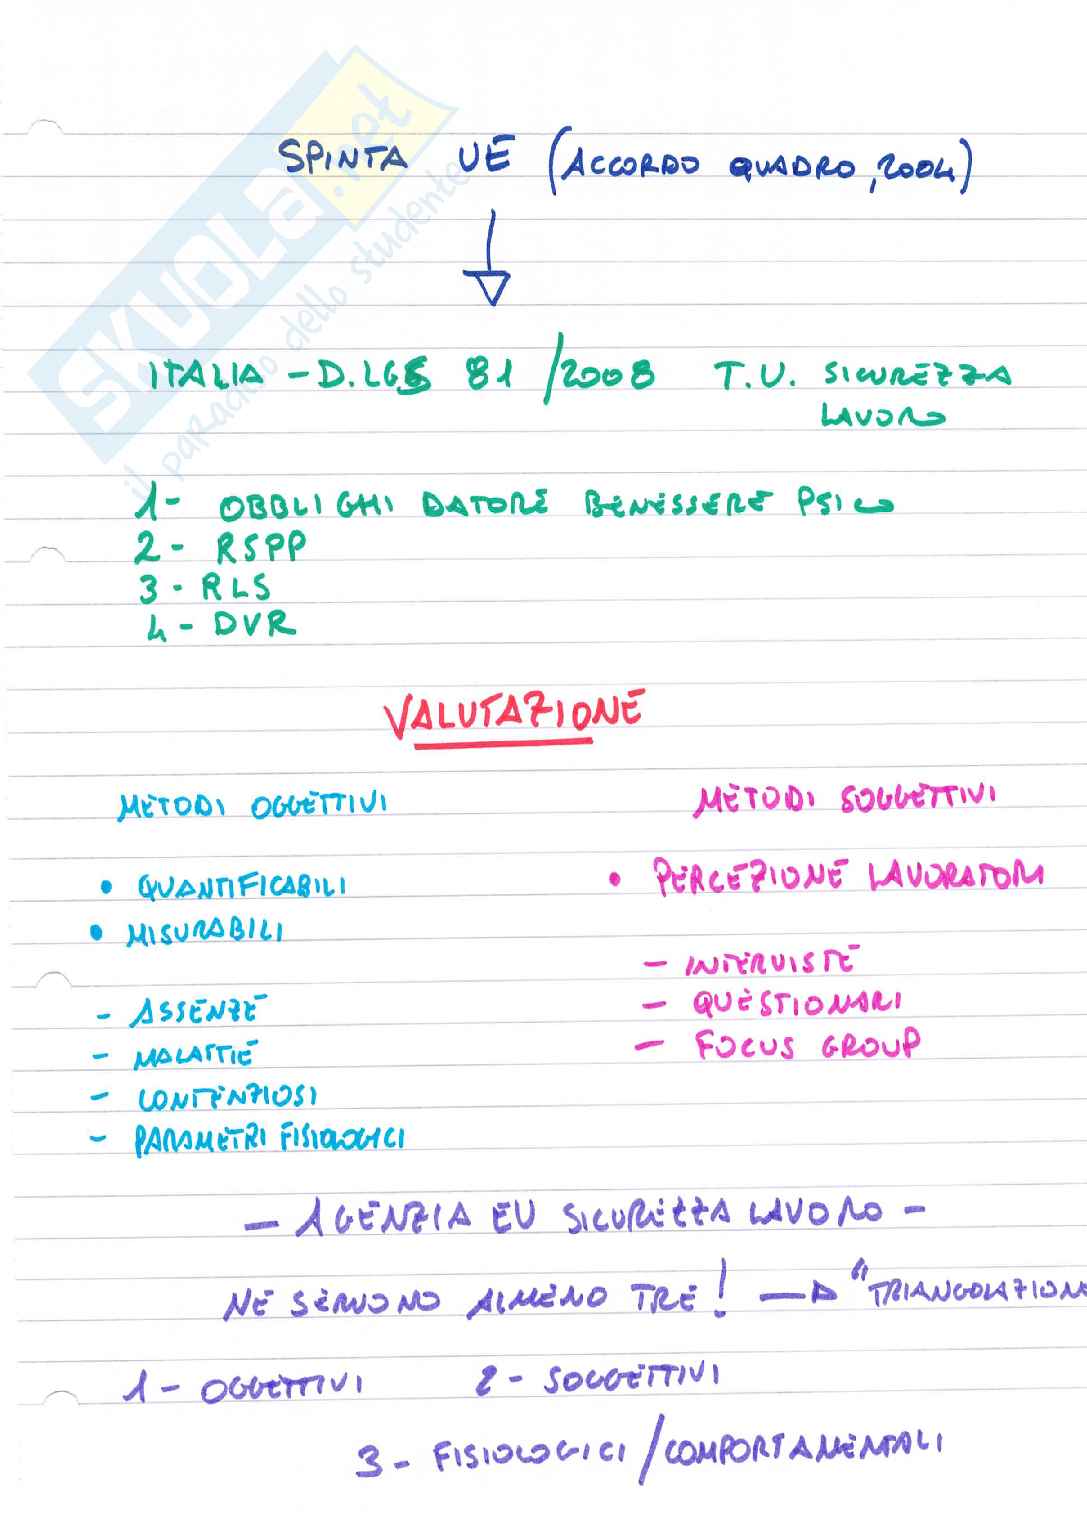 SKUOLA.net
il paradiso dello studente
SPINTA UE (ACCORDO QUADRO, 2004)
ITALIA - D.LGS 81/2008 T.U. SICUREZZA
LAVORO
1- OBBLIGHI DATORE BENESSERE PSICO
2- RSPP
3- RLS
4- DVR
VALUTAZIONE
METODI OGGETTIVI METODI SOGGETTIVI
• QUANTIFICABILI • PERCEZIONE LAVORATORI
• MISURABILI
- INTERVISTE
- ASSENZE - QUESTIONARI
- MALATTIE - FOCUS GROUP
- CONTENZIOSI
- PARAMETRI FISIOLOGICI
- AGENZIA EU SICUREZZA LAVORO -
NE SERVONO ALMENO TRE! → "TRIANGOLAZION
1- OGGETTIVI 2- SOGGETTIVI
3- FISIOLOGICI/COMPORTAMENTALI